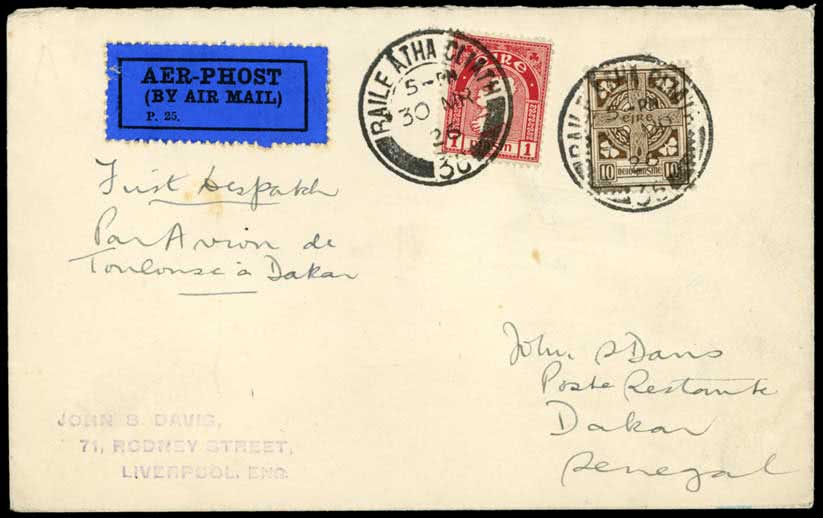 AER-PHOST
(BY AIR MAIL)
P. 25.
BAILE ATHA CLIATH
5-PM
30 MR
26
36
éire
1 1
PM
26
36
éire
10 10
First Despatch
Par Avion de
Toulouse à Dakar
John S Davis
Poste Restante
Dakar
Senegal
JOHN S. DAVIS,
71, RODNEY STREET,
LIVERPOOL, ENG.